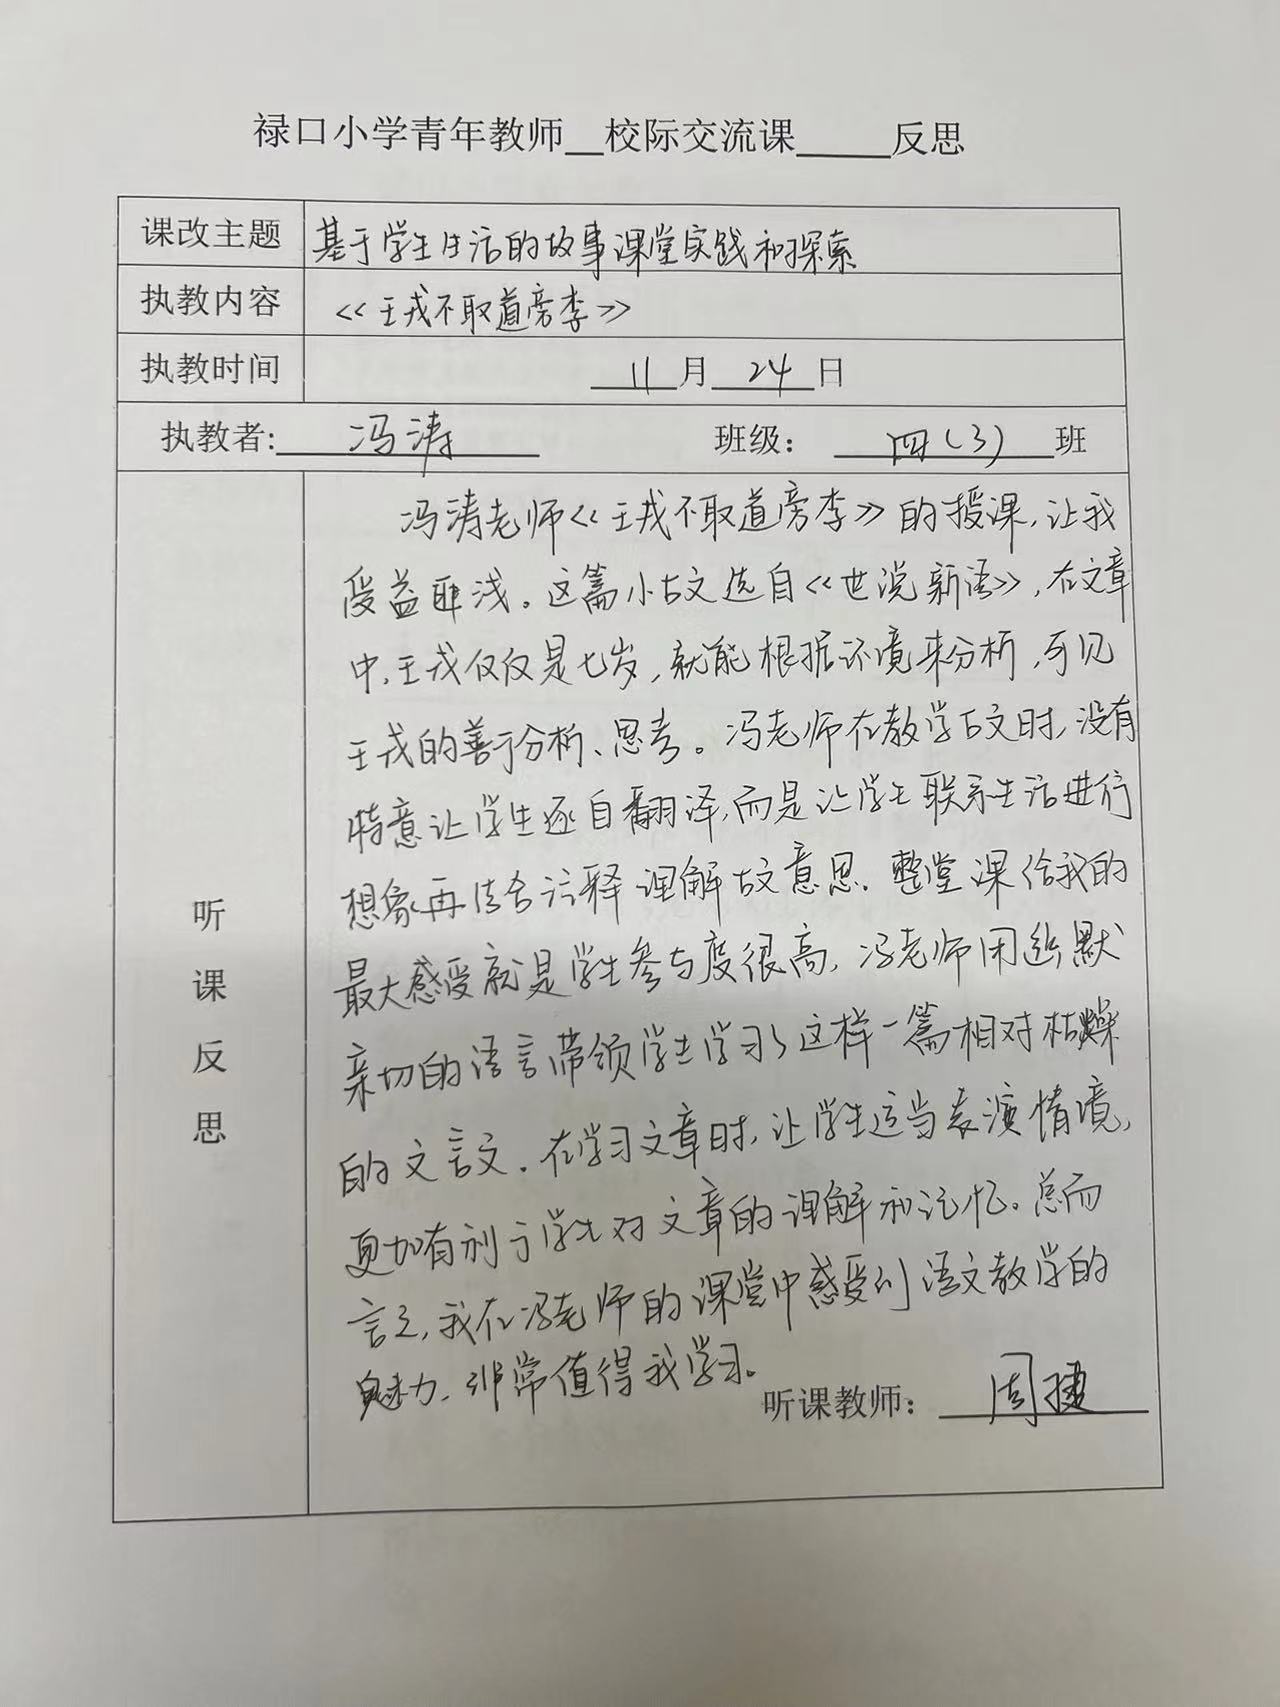 禄口小学青年教师__校际交流课_____反思
课改主题 基于学生生活的故事课堂实践和探索
执教内容 《王戎不取道旁李》
执教时间 11月24日
执教者: 冯涛 班级: 四(3)班
听课反思
冯涛老师《王戎不取道旁李》的授课,让我
受益匪浅。这篇小古文选自《世说新语》,在文章
中,王戎仅仅是七岁,就能根据环境来分析,可见
王戎的善于分析、思考。冯老师在教学古文时,没有
特意让学生逐自翻译,而是让学生联系生活进行
想象再结合注释理解古文意思.整堂课给我的
最大感受就是学生参与度很高,冯老师用幽默
亲切的语言带领学生学习了这样一篇相对枯燥
的文言文.在学习文章时,让学生适当表演情境,
更加有利于学生对文章的理解和记忆。总而
言之,我在冯老师的课堂中感受到语文教学的
魅力、非常值得我学习。
听课教师: 周捷